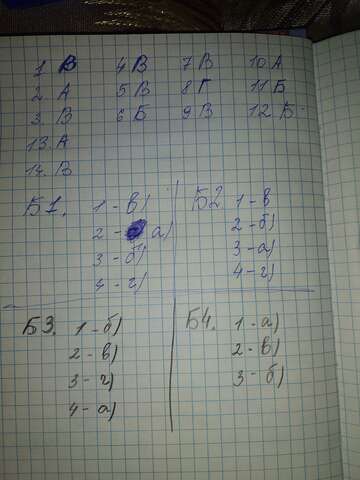 1. В 4 В 7 В 10 А
2. А 5 В 8 Г 11 Б
3. В 6 Б 9 В 12 Б
13. А
14. В
Б1. 1 - в) Б2 1 - в
2 - а) 2 - б)
3 - б) 3 - а)
4 - г) 4 - г)
Б3. 1 - б) Б4. 1 - а)
2 - в) 2 - в)
3 - г) 3 - б)
4 - а)